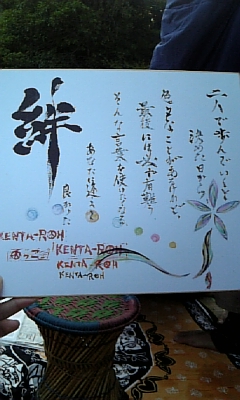 二人で歩んでいこうと
決めた日から
色々なことがあるけれど
最後には必ず
そんな言葉を使いたくなる
あなたに逢えて
良かった
絆
KENTA-ROH
KENTA-ROH
KENTA-ROH
KENTA-ROH